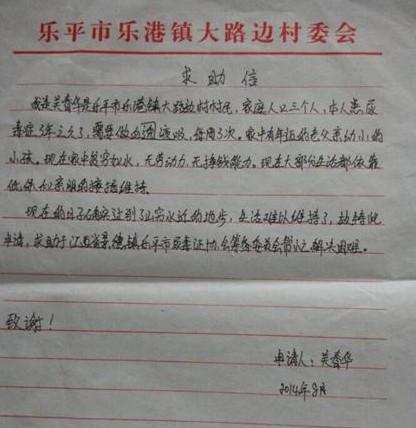 乐平市乐港镇大路边村委会
求助信
我是吴春华是乐平市乐港镇大路边村村民，家庭人口三个人，本人患尿
毒症3年之久了，需要做血透，每周3次。家中有年迈的老父亲幼小的
小孩。现在家中贫穷如水，无劳动力，无挣钱能力。现在大部分生活都依靠
低保和亲朋的接接维持。
现在的日子确实过到了山穷水近的地步，生活难以维持了，故特此
申请，求助于江西省景德镇乐平市尿毒证协会筹备委员会帮忙解决困难。
致谢！
申请人：吴春华
2014年8月